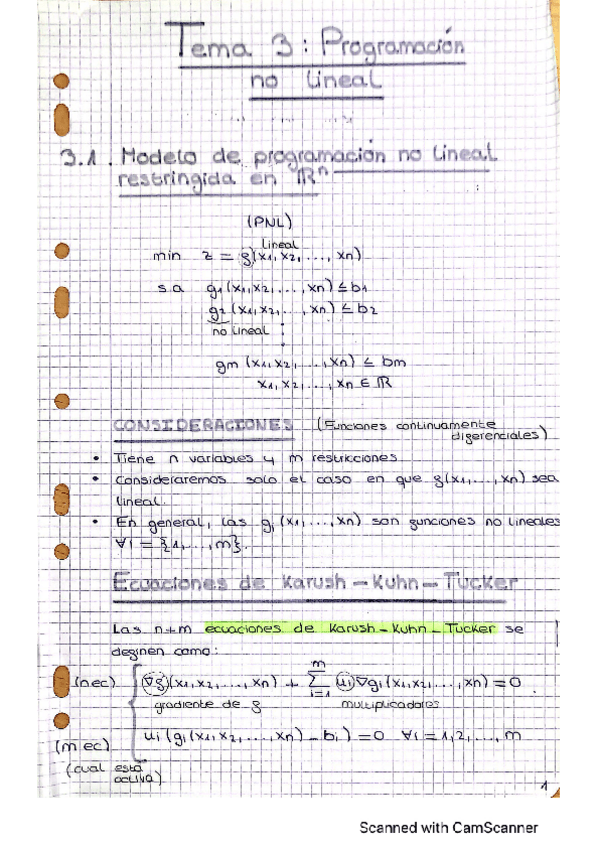 Tema 3: Programación
no lineal
3.1. Modelo de programación no lineal
restringida en ℝⁿ
(PNL)
lineal
min z = f(x1, x2, ..., xn)
s.a g1(x1, x2, ..., xn) ≤ b1
g2(x1, x2, ..., xn) ≤ b2
no lineal ⋮
gm(x1, x2, ..., xn) ≤ bm
x1, x2, ..., xn ∈ ℝ
CONSIDERACIONES (Funciones continuamente
diferenciales)
• Tiene n variables y m restricciones
• Consideraremos solo el caso en que f(x1, ..., xn) sea
lineal.
• En general, las gi(x1, ..., xn) son funciones no lineales
∀i = {1, ..., m}.
Ecuaciones de Karush-Kuhn-Tucker
Las n+m ecuaciones de Karush-Kuhn-Tucker se
definen como:
(n ec) ∇f(x1, x2, ..., xn) + m∑i=1 ui ∇gi(x1, x2, ..., xn) = 0
gradiente de f multiplicadores
(m ec) ui(gi(x1, x2, ..., xn) - bi) = 0 ∀i = 1, 2, ..., m
(cual está
activa)
1
Scanned with CamScanner